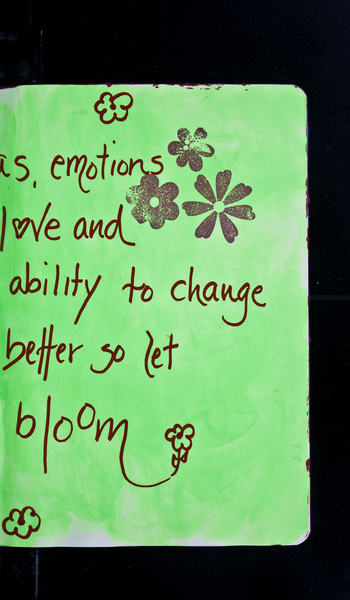 as, emotions
love and
ability to change
better so let
bloom